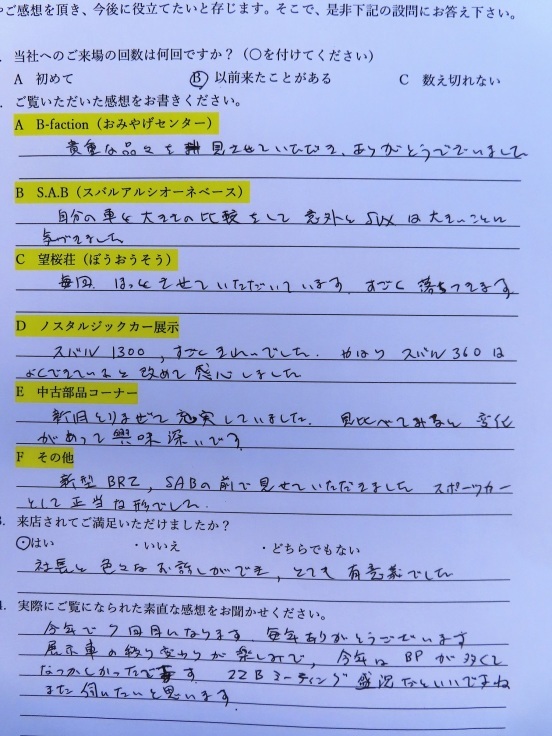 やご感想を頂き、今後に役立てたいと存じます。そこで、是非下記の設問にお答え下さい。
. 当社へのご来場の回数は何回ですか？（○を付けてください）
A 初めて B 以前来たことがある C 数え切れない
. ご覧いただいた感想をお書きください。
A B-faction（おみやげセンター）
貴重な品々を見させていただき、ありがとうございました
B S.A.B（スバルアルシオーネベース）
自分の車と大きさの比較をして 意外と SVX は大きいことに
気づきました
C 望桜荘（ぼうおうそう）
毎回、ほっとさせていただいています。すごく落ちつきます。
D ノスタルジックカー展示
スバル1300、すごくきれいでした。やはり スバル360は
よくできていると改めて感心しました
E 中古部品コーナー
新旧とりまぜて充実していました。見比べてみると変化
があって興味深いです
F その他
新型BRZ、SABの前で見せていただきました スポーツカー
として正当な形でした。
3. 来店されてご満足いただけましたか？
・はい ・いいえ ・どちらでもない
社長と色々なお話しができ、とても有意義でした
4. 実際にご覧になられた素直な感想をお聞かせください。
今年で7回目になります。毎年ありがとうございます
展示車の移り変わりが楽しみで、今年はBPが多くて
なつかしかったです 22Bミーティング盛況だといいですね
また伺いたいと思います。